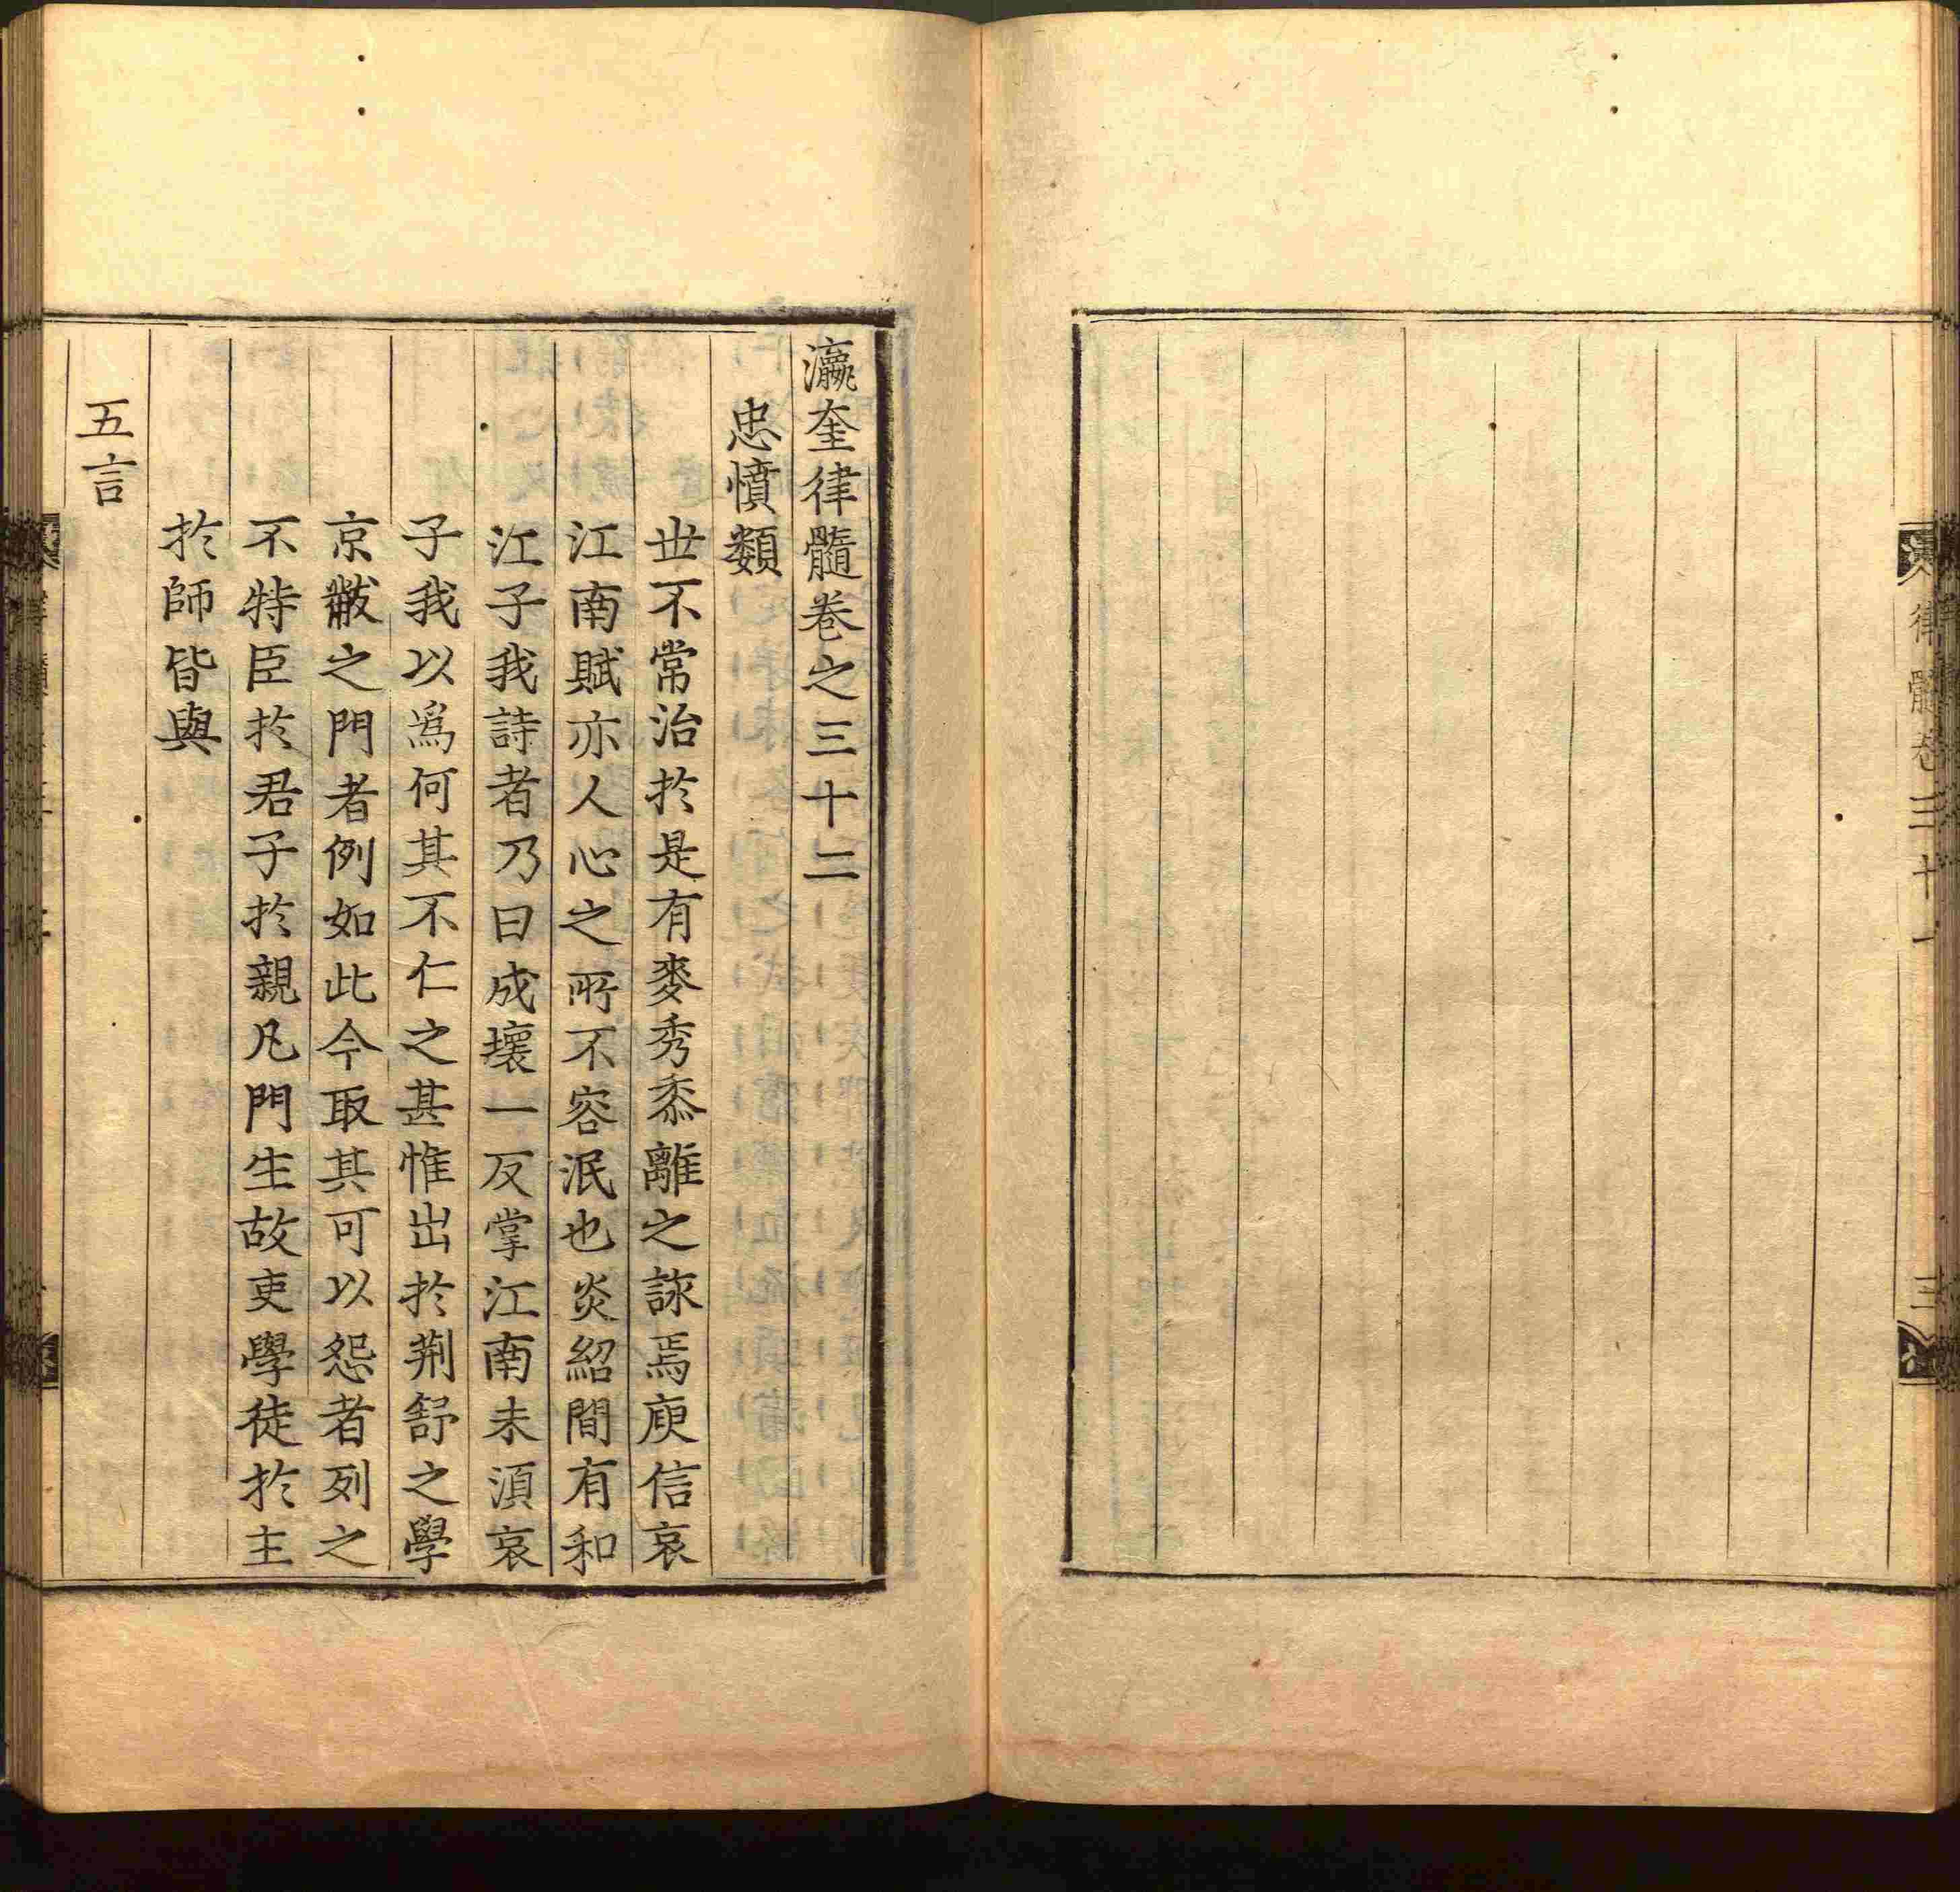 律髓卷三十一
三
瀛奎律髓卷之三十二
忠憤類
世不常治於是有麥秀黍離之詠焉庾信哀
江南賦亦人心之所不容泯也炎紹間有和
江子我詩者乃曰成壞一反掌江南未須哀
子我以爲何其不仁之甚惟出於荆舒之學
京黻之門者例如此今取其可以怨者列之
不特臣於君子於親凡門生故吏學徒於主
於師皆與
五言